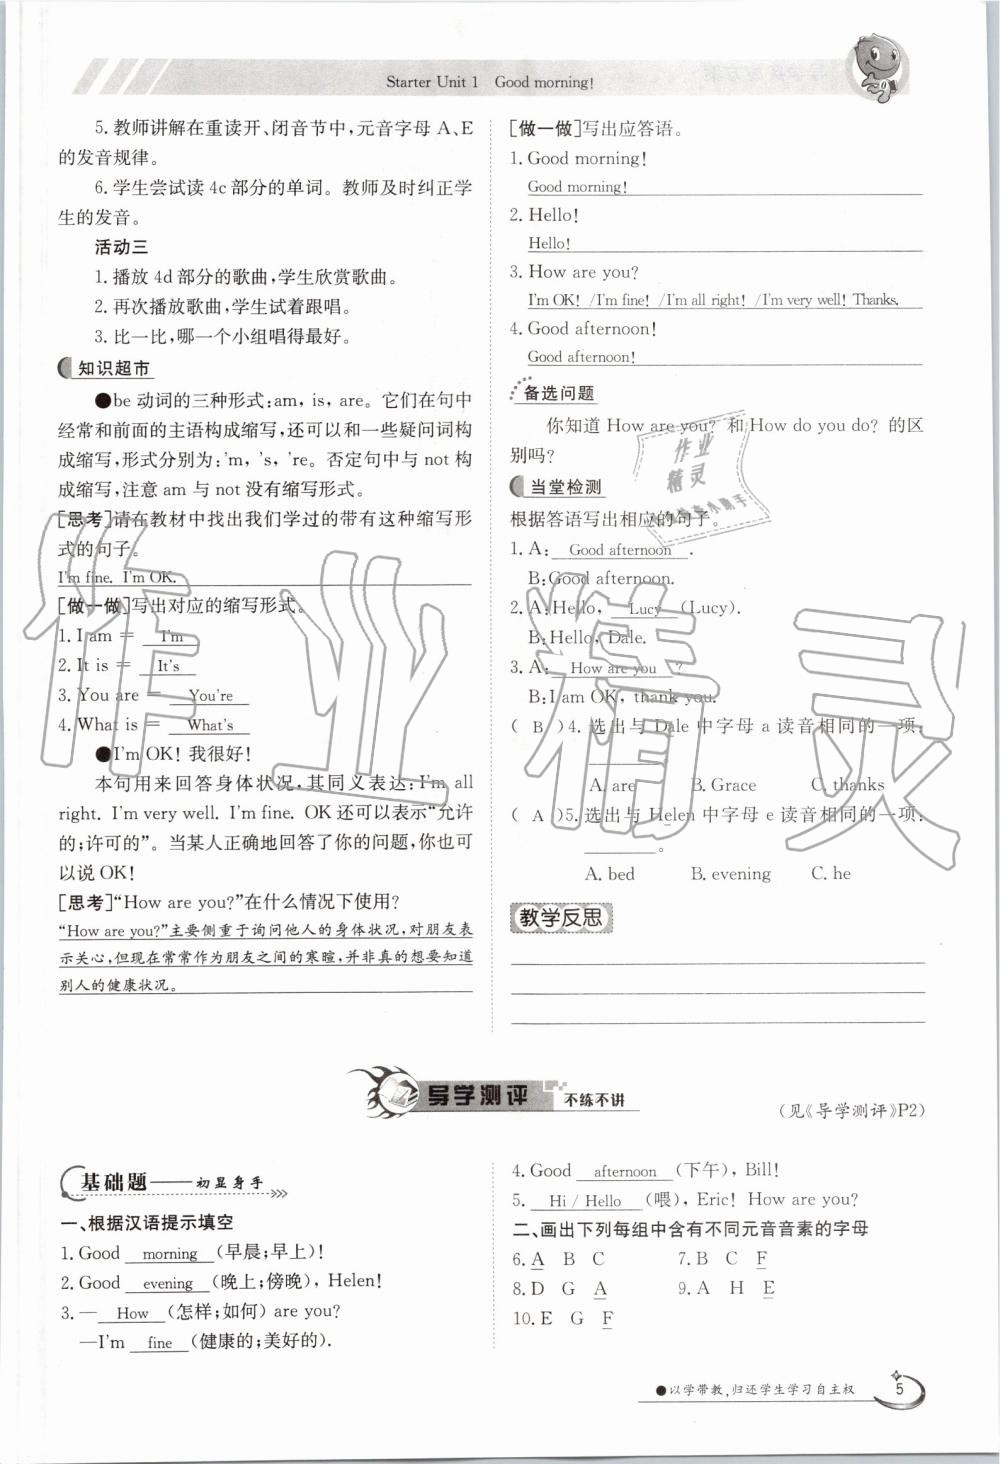 Starter Unit 1　Good morning!
5. 教师讲解在重读开、闭音节中,元音字母 A、E
的发音规律。
6. 学生尝试读 4c 部分的单词。教师及时纠正学
生的发音。
活动三
1. 播放 4d 部分的歌曲,学生欣赏歌曲。
2. 再次播放歌曲,学生试着跟唱。
3. 比一比,哪一个小组唱得最好。
知识超市
●be 动词的三种形式:am, is, are。它们在句中
经常和前面的主语构成缩写,还可以和一些疑问词构
成缩写,形式分别为:'m, 's, 're。否定句中与 not 构
成缩写,注意 am 与 not 没有缩写形式。
[思考]请在教材中找出我们学过的带有这种缩写形
式的句子。
I'm fine. I'm OK.
[做一做]写出对应的缩写形式。
1. I am = I'm
2. It is = It's
3. You are = You're
4. What is = What's
●I'm OK! 我很好!
本句用来回答身体状况,其同义表达:I'm all
right. I'm very well. I'm fine. OK 还可以表示“允许
的;许可的”。当某人正确地回答了你的问题,你也可
以说 OK!
[思考]“How are you?”在什么情况下使用?
“How are you?”主要侧重于询问他人的身体状况,对朋友表
示关心,但现在常常作为朋友之间的寒暄,并非真的想要知道
别人的健康状况。
[做一做]写出应答语。
1. Good morning!
Good morning!
2. Hello!
Hello!
3. How are you?
I'm OK! /I'm fine! /I'm all right! /I'm very well! Thanks.
4. Good afternoon!
Good afternoon!
备选问题
你知道 How are you? 和 How do you do? 的区
别吗?
当堂检测
根据答语写出相应的句子。
1. A: Good afternoon .
B: Good afternoon.
2. A: Hello, Lucy (Lucy).
B: Hello, Dale.
3. A: How are you ?
B: I am OK, thank you.
( B )4. 选出与 Dale 中字母 a 读音相同的一项:
A. are B. Grace C. thanks
( A )5. 选出与 Helen 中字母 e 读音相同的一项:
A. bed B. evening C. he
教学反思
导学测评 不练不讲
(见《导学测评》P2)
基础题——初显身手
一、根据汉语提示填空
1. Good morning (早晨;早上)!
2. Good evening (晚上;傍晚), Helen!
3. — How (怎样;如何) are you?
—I'm fine (健康的;美好的).
4. Good afternoon (下午), Bill!
5. Hi / Hello (喂), Eric! How are you?
二、画出下列每组中含有不同元音音素的字母
6. A B C 7. B C F
8. D G A 9. A H E
10. E G F
●以学带教,归还学生学习自主权 5
作业精灵
作业
精灵